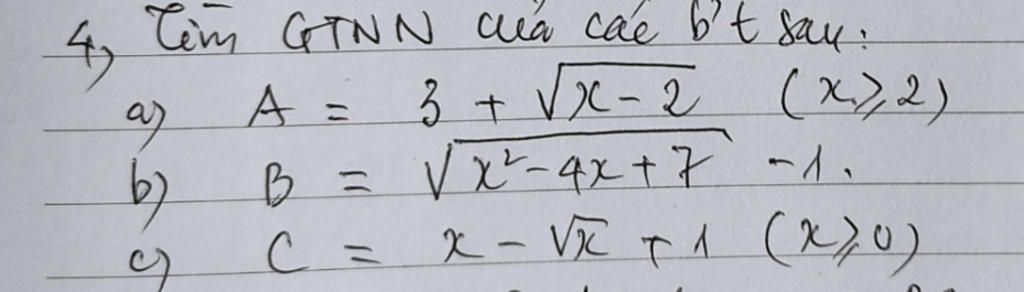 4, Tìm GTNN của các b't sau:
a) A = 3 + √(x-2) (x ≥ 2)
b) B = √(x²-4x+7) -1.
c) C = x - √x + 1 (x ≥ 0)